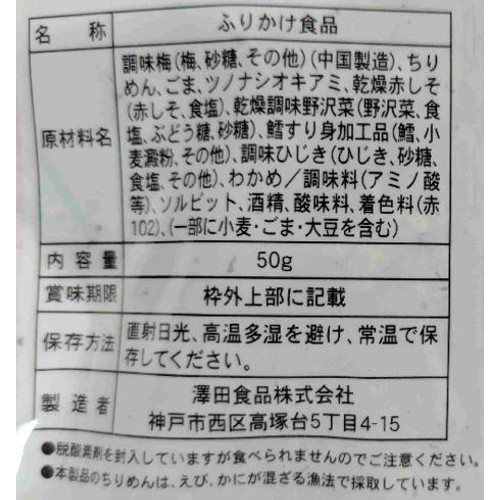 名称 ふりかけ食品
原材料名 調味梅(梅、砂糖、その他)(中国製造)、ちり
めん、ごま、ツノナシオキアミ、乾燥赤しそ
(赤しそ、食塩)、乾燥調味野沢菜(野沢菜、食
塩、ぶどう糖、砂糖)、鱈すり身加工品(鱈、小
麦澱粉、その他)、調味ひじき(ひじき、砂糖、
食塩、その他)、わかめ/調味料(アミノ酸
等)、ソルビット、酒精、酸味料、着色料(赤
102)、(一部に小麦・ごま・大豆を含む)
内容量 50g
賞味期限 枠外上部に記載
保存方法 直射日光、高温多湿を避け、常温で保
存してください。
製造者 澤田食品株式会社
神戸市西区高塚台5丁目4-15
●脱酸素剤を封入していますが食べられませんのでご注意ください。
●本製品のちりめんは、えび、かにが混ざる漁法で採取しています。